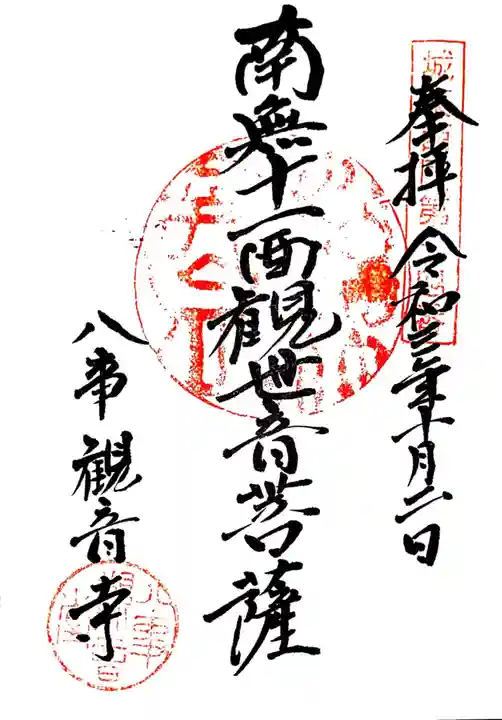 奉拝 令和三年十月二日
南無十一面観世音菩薩
八事観音寺